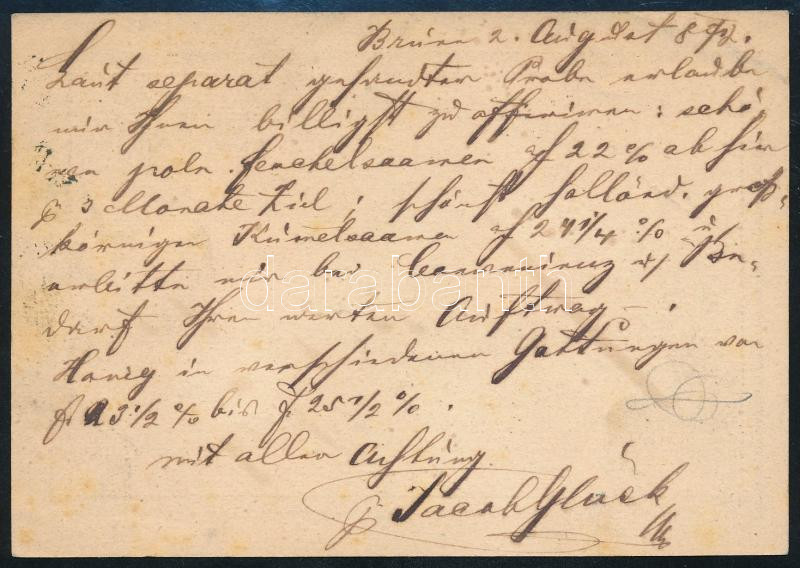 Brünn 2. August 872.
Laut separat gesandter Probe erlaube
mir Ihnen billigst zu offeriren: schö
nen poln. Fenchelsaamen zf 22% ab hier
p 3 Monate Ziel; schönst holländ. groß-
körnigen Kümelsaamen zf 27 1/4 % u
erbitte mir bei Convenienz u/ Be-
darf Ihren werten Auftrag –.
Honig in verschiedenen Gattungen von
f 23 1/2 % bis f. 25 1/2 %.
mit aller Achtung
Jacob Glück
darabanth